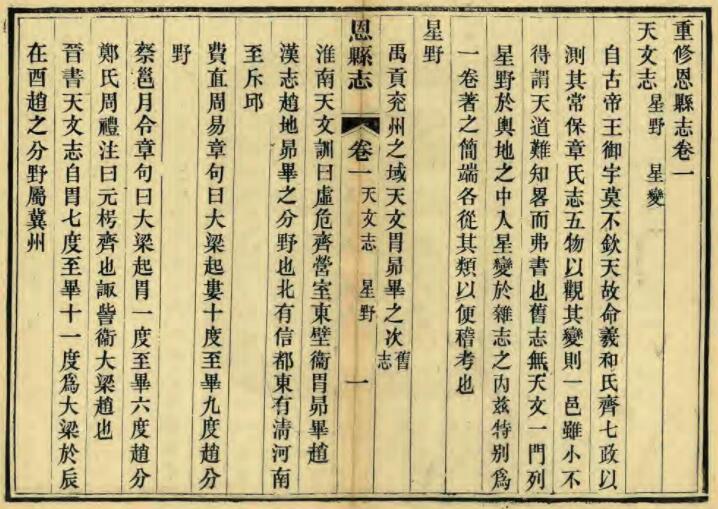 重修恩縣志卷一
天文志 星野 星變
自古帝王御宇莫不欽天故命羲和氏齊七政以
測其常保章氏志五物以觀其變則一邑雖小不
得謂天道難知畧而弗書也舊志無天文一門列
星野於輿地之中入星變於雜志之內茲特別為
一卷著之簡端各從其類以便稽考也
星野
禹貢兗州之域天文胃昴畢之次舊志
恩縣志 卷一 天文志 星野 一
淮南天文訓曰虛危齊營室東壁衞胃昴畢趙
漢志趙地昴畢之分野也北有信都東有清河南
至斥邱
費直周易章句曰大梁起婁十度至畢九度趙分
野
蔡邕月令章句曰大梁起胃一度至畢六度趙分
鄭氏周禮注曰元枵齊也諏訾衞大梁趙也
晉書天文志自胃七度至畢十一度為大梁於辰
在酉趙之分野屬冀州